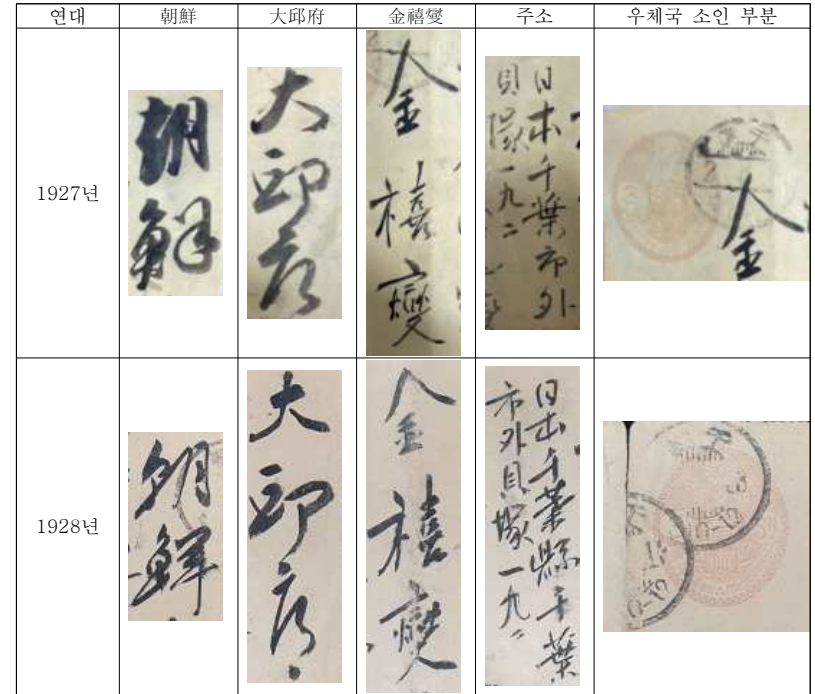 연대 朝鮮 大邱府 金禧燮 주소 우체국 소인 부분
1927년
朝鮮
大邱府
金禧燮
日本千葉市外
貝塚一九二
金
1928년
朝鮮
大邱府
金禧燮
日本千葉縣千葉
市外貝塚一九二